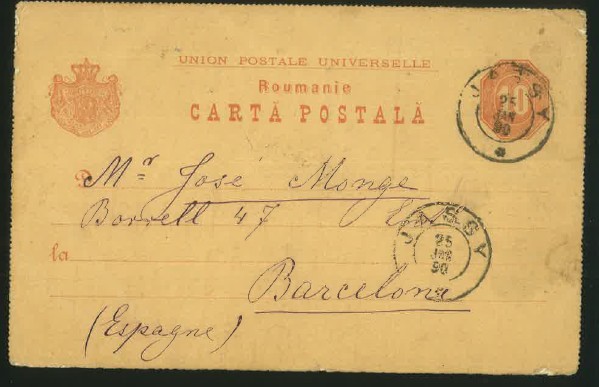 UNION POSTALE UNIVERSELLE
Roumanie
CARTĂ POSTALĂ
10
JASSY
25
JAN
90
D Mr José Monge
Borrell 47
JASSY
25
JAN
90
la
Barcelona
(Espagne)